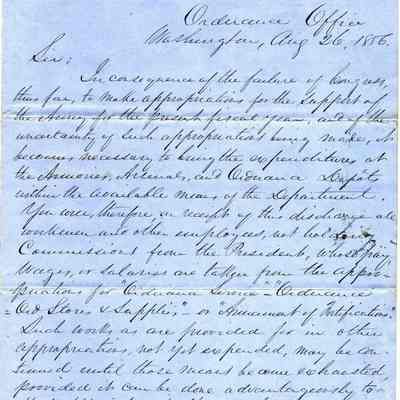 Ordnance Office
Washington, Aug 26, 1856.
Sir:
In consequence of the failure of Congress,
thus far, to make appropriations for the support of
the Army for the present fiscal year, and of the
uncertainty of such appropriations being made, it
becomes necessary to bring the expenditures at
the Armories, Arsenals, and Ordnance Depots
within the available means of the Department.
You will, therefore, on receipt of this discharge all
workmen and other employees, not holding
Commissions from the President, whose pay,
Wages, or Salaries are taken from the appro-
priations for "Ordnance Service" - "Ordnance
= Ord. Stores & Supplies" - or "Armament of Fortifications."
Such works as are provided for in other
appropriations, not yet expended, may be con-
tinued until those means become exhausted,
provided it can be done advantageously to